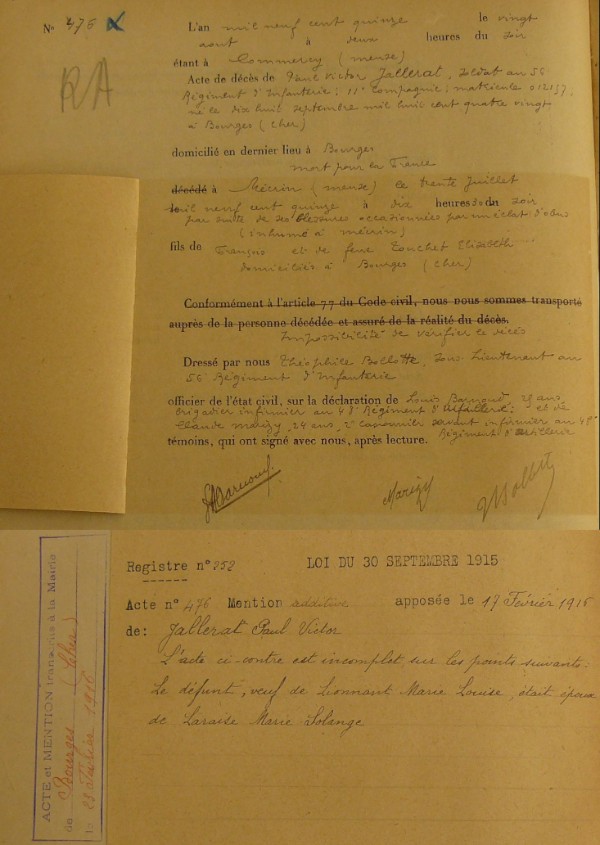 No 476
RA
L'an mil neuf cent quinze le vingt
aout à deux heures du soir
étant à Commercy (meuse)
Acte de décès de Paul Victor Jallerat, soldat au 56
Régiment d'Infanterie; 11e Compagnie; matricule 012157
né le dix huit septembre mil huit cent quatre vingt
à Bourges (Cher)
domicilié en dernier lieu à Bourges
mort pour la France
décédé à Mécrin (meuse) le trente Juillet
mil neuf cent quinze à dix heures 30 du soir
par suite de ses blessures occasionnées par un éclat d'obus
(inhumé à mécrin)
fils de François et de feue Touchet Elisabeth
domiciliés à Bourges (Cher)
Conformément à l'article 77 du Code civil, nous nous sommes transporté
auprès de la personne décédée et assuré de la réalité du décès.
Impossibilité de vérifier le décès
Dressé par nous Théophile Bollotte, sous Lieutenant au
56 Régiment d'Infanterie
officier de l'état civil, sur la déclaration de Louis 29 ans,
brigadier infirmier au 48e Régiment d'Artillerie; et de
Claude Marizy, 24 ans, 2e Canonnier servant infirmier au 48e
Régiment d'Artillerie
témoins, qui ont signé avec nous, après lecture.
Marizy
ACTE et MENTION transcrits à la Mairie
de Bourges (Cher)
le 23 Février 1916
Registre n° 252 LOI DU 30 SEPTEMBRE 1915
Acte n° 476 Mention additive apposée le 17 Février 1916
de: Jallerat Paul Victor
L'acte ci contre est incomplet sur les points suivants:
Le défunt, veuf de Lionnant Marie Louise, était époux
de Laraise Marie Solange